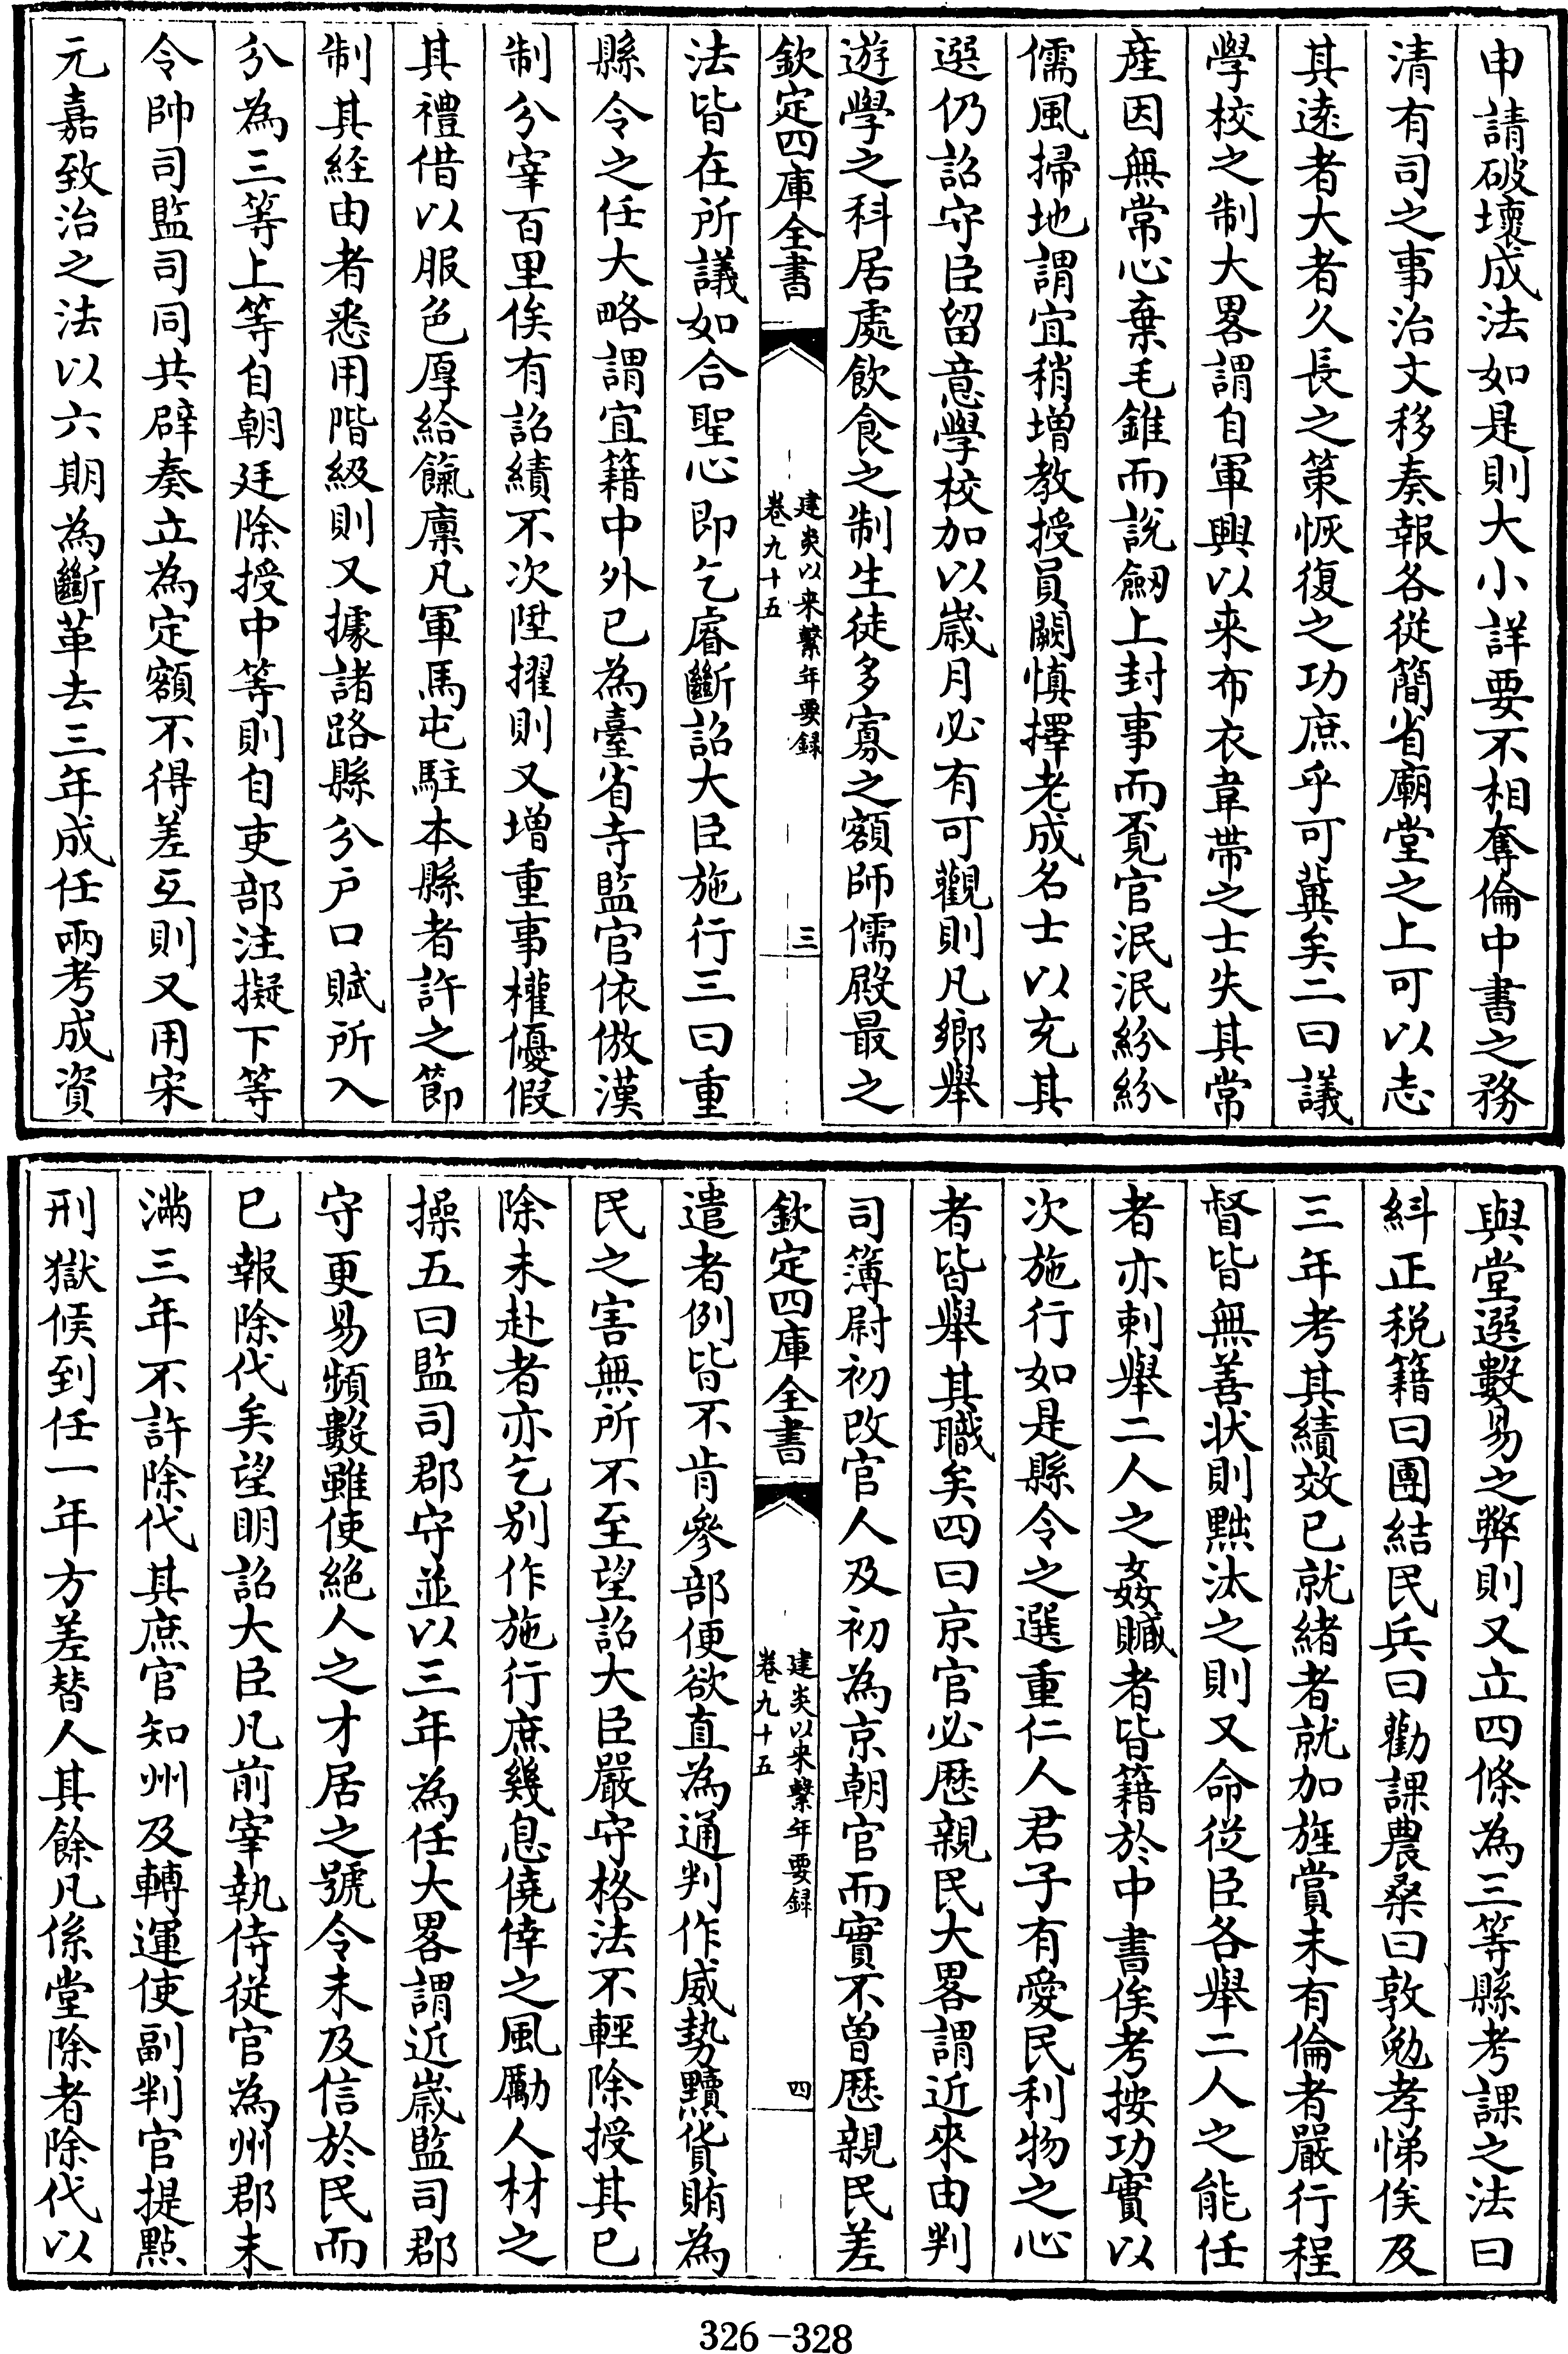 申請破壞成法如是則大小詳要不相奪倫中書之務
清有司之事治文移奏報各從簡省廟堂之上可以志
其遠者大者久長之策恢復之功庶乎可冀矣二曰議
學校之制大畧謂自軍興以来布衣韋帶之士失其常
産因無常心棄毛錐而說劒上封事而覔官泯泯紛紛
儒風掃地謂宜稍增教授員闕慎擇老成名士以充其
選仍詔守臣留意學校加以歲月必有可觀則凡鄉舉
遊學之科居處飲食之制生徒多寡之額師儒殿最之
欽定四庫全書
建炎以来繫年要録
卷九十五
三
法皆在所議如合聖心即乞睿斷詔大臣施行三曰重
縣令之任大略謂宜籍中外已為臺省寺監官依倣漢
制分宰百里俟有詔績不次陞擢則又增重事權優假
其禮借以服色厚給餼廪凡軍馬屯駐本縣者許之節
制其経由者悉用階級則又據諸路縣分户口賦所入
分為三等上等自朝廷除授中等則自吏部注擬下等
令帥司監司同共辟奏立為定額不得差互則又用宋
元嘉致治之法以六期為斷革去三年成任兩考成資
與堂選數易之弊則又立四條為三等縣考課之法曰
糾正税籍曰團結民兵曰勸課農桑曰敦勉孝悌俟及
三年考其績效已就緒者就加旌賞未有倫者嚴行程
督皆無善状則黜汰之則又命從臣各舉二人之能任
者亦刺舉二人之姦贓者皆籍於中書俟考按功實以
次施行如是縣令之選重仁人君子有愛民利物之心
者皆舉其職矣四曰京官必歴親民大畧謂近來由判
司簿尉初改官人及初為京朝官而實不曾歴親民差
欽定四庫全書
建炎以来繫年要録
卷九十五
四
遣者例皆不肯參部便欲直為通判作威勢黷貨賄為
民之害無所不至望詔大臣嚴守格法不輕除授其已
除未赴者亦乞别作施行庶幾息僥倖之風勵人材之
操五曰監司郡守並以三年為任大畧謂近歲監司郡
守更易頻數雖使絶人之才居之號令未及信於民而
已報除代矣望明詔大臣凡前宰執侍從官為州郡未
滿三年不許除代其庶官知州及轉運使副判官提點
刑獄候到任一年方差替人其餘凡係堂除者除代以
326-328